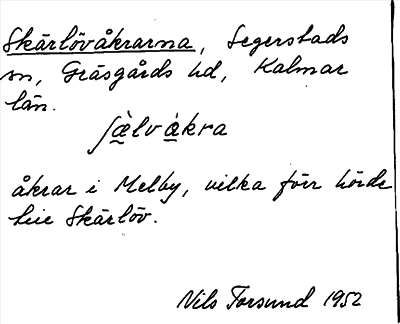 Skärlövåkrarna, Segerstads
sn, Gräsgårds hd, Kalmar
län.
ʃæ̀lvå̀kra
åkrar i Melby, vilka förr hörde
till Skärlöv.
Nils Torsund 1952